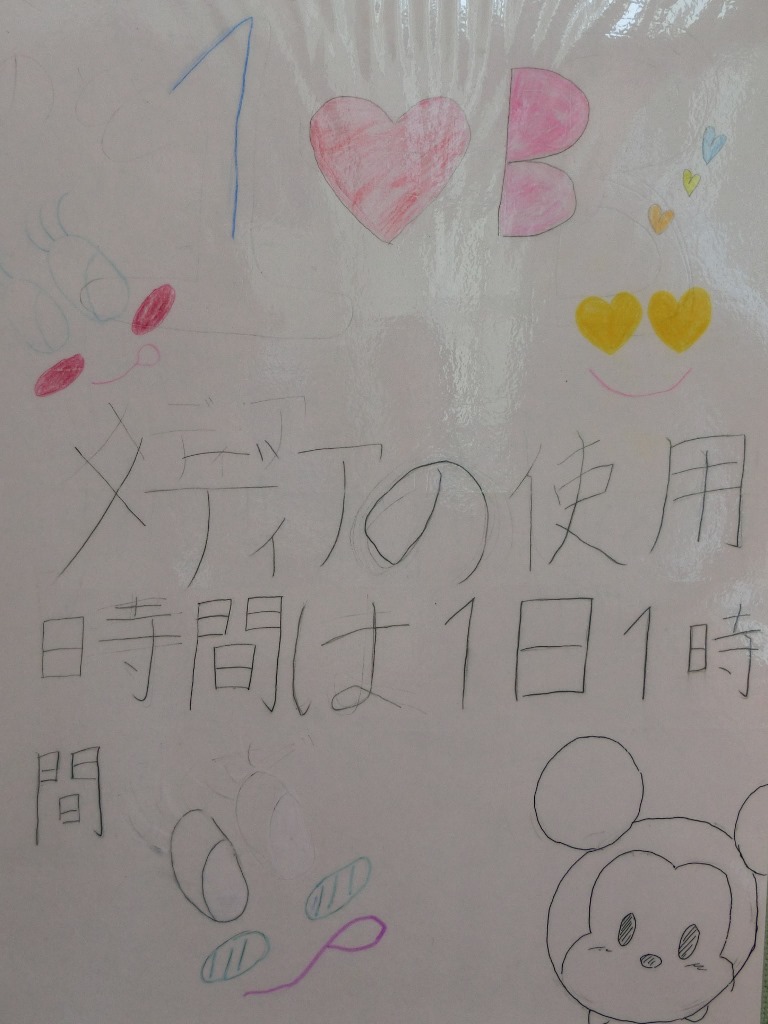 1 B
メディアの使用
時間は1日1時
間